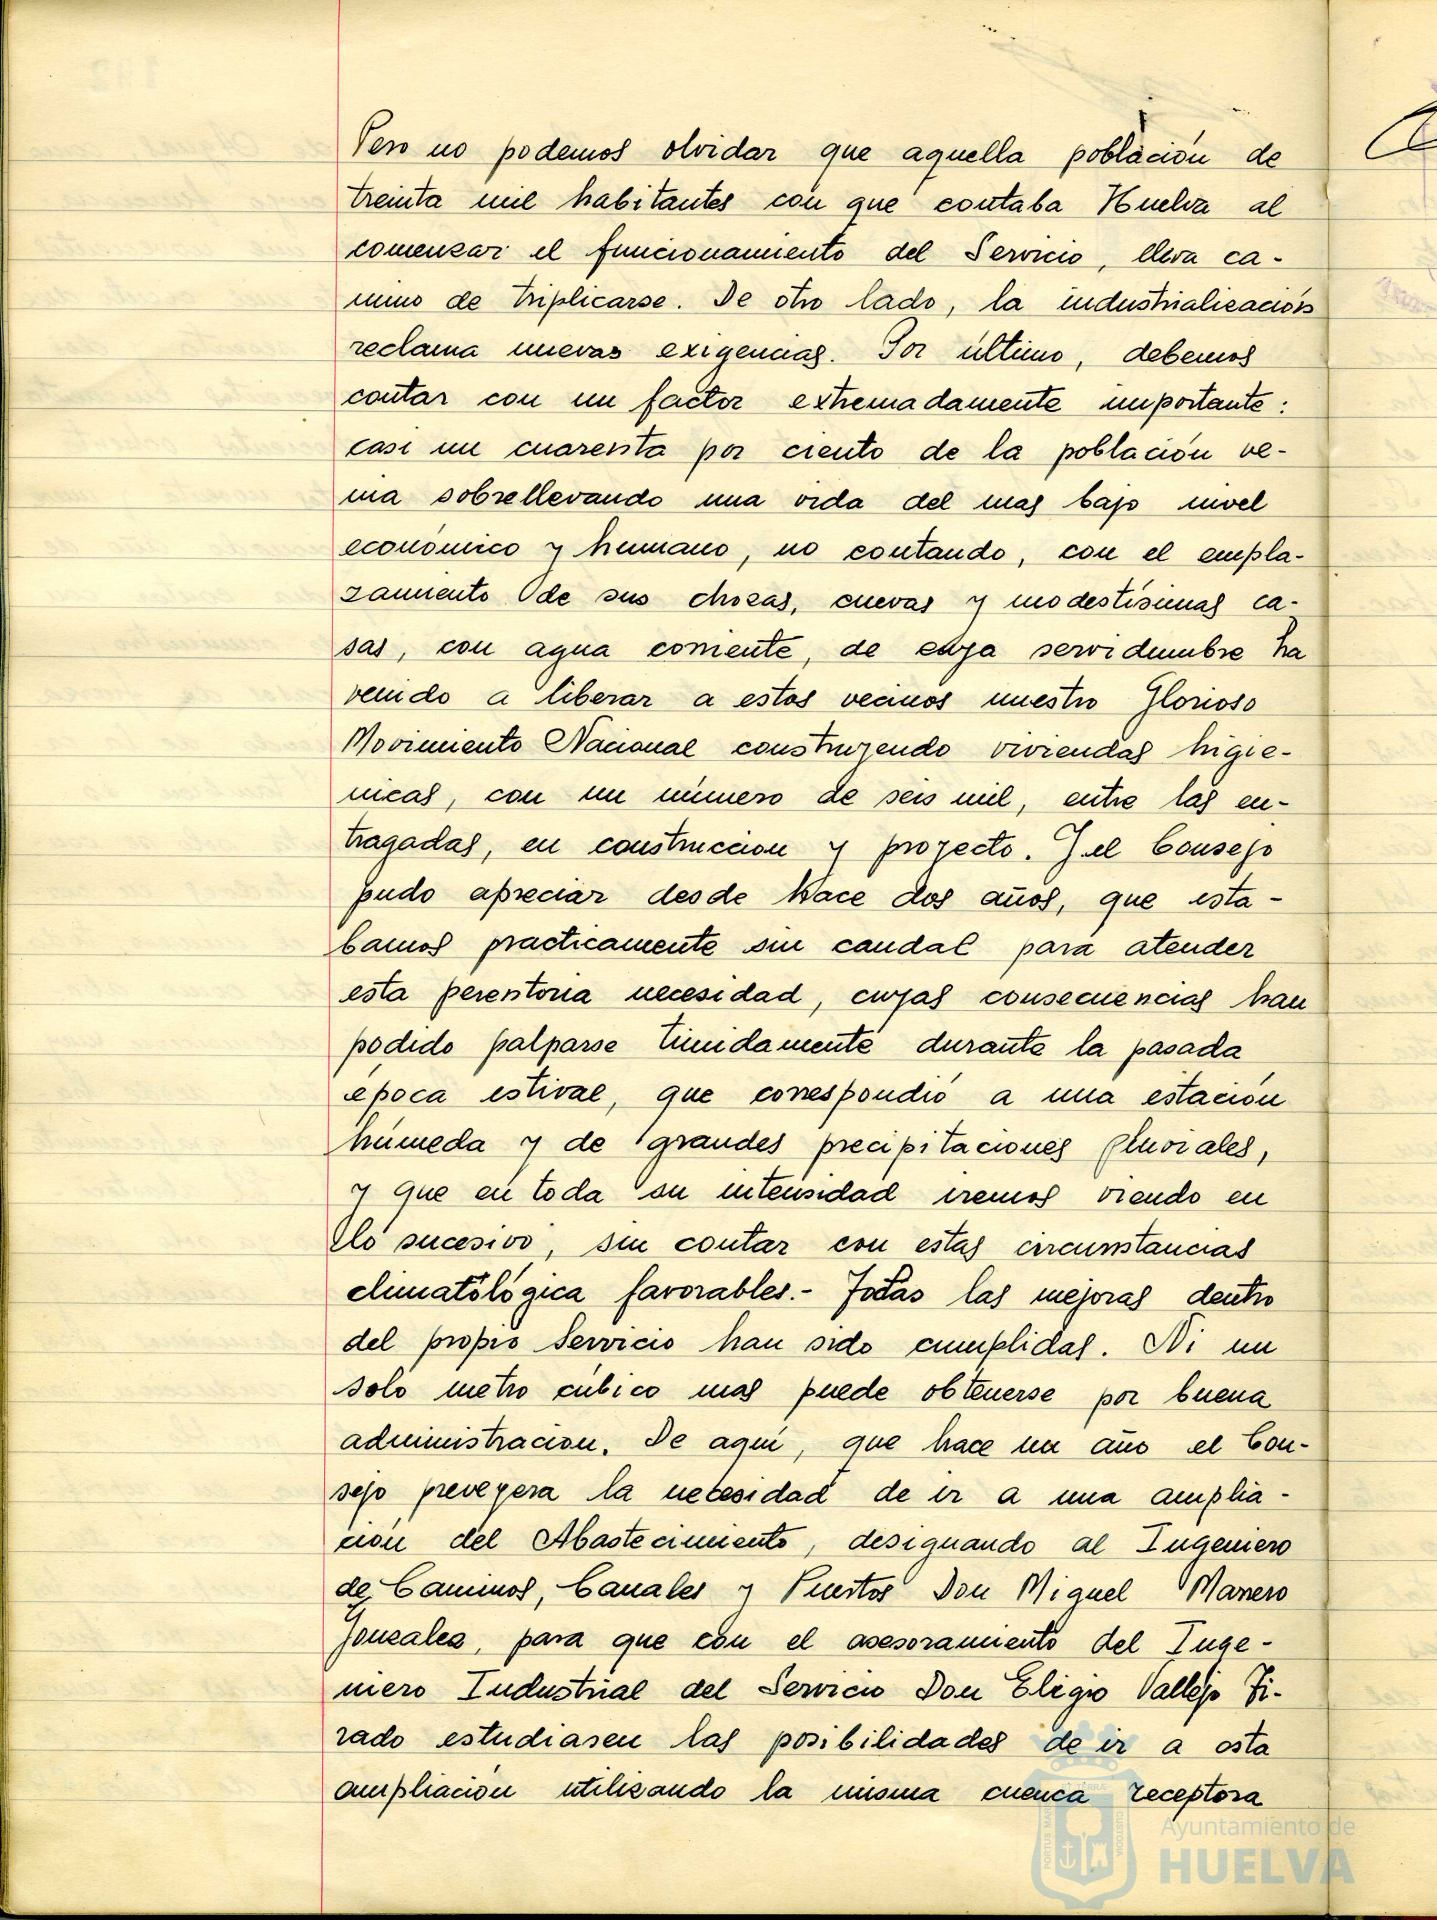 Pero no podemos olvidar que aquella población de
treinta mil habitantes con que contaba Huelva al
comenzar el funcionamiento del Servicio, lleva ca-
mino de triplicarse. De otro lado, la industrialización
reclama nuevas exigencias. Por último, debemos
contar con un factor extremadamente importante:
casi un cuarenta por ciento de la población ve-
nia sobrellevando una vida del mas bajo nivel
económico y humano, no contando, con el empla-
zamiento de sus chozas, cuevas y modestísimas ca-
sas, con agua corriente, de cuya servidumbre ha
venido a liberar a estos vecinos nuestro Glorioso
Movimiento Nacional construyendo viviendas higie-
nicas, con un número de seis mil, entre las en-
tragadas, en construccion y proyecto. Y el Consejo
pudo apreciar desde hace dos años, que esta-
bamos practicamente sin caudal para atender
esta perentoria necesidad, cuyas consecuencias han
podido palparse timidamente durante la pasada
época estival, que correspondió a una estación
húmeda y de grandes precipitaciones pluviales,
y que en toda su intensidad iremos viendo en
lo sucesivo, sin contar con estas circunstancias
climatológica favorables.- Todas las mejoras dentro
del propio Servicio han sido cumplidas. Ni un
solo metro cúbico mas puede obtenerse por buena
administracion. De aquí, que hace un año el Con-
sejo preveyera la necesidad de ir a una amplia-
ción del Abastecimiento, designando al Ingeniero
de Caminos, Canales y Puertos Don Miguel Marrero
Gonzalez, para que con el asesoramiento del Inge-
niero Industrial del Servicio Don Eligio Vallejo Ti-
rado estudiasen las posibilidades de ir a esta
ampliación utilizando la misma cuenca receptora
Ayuntamiento de
HUELVA